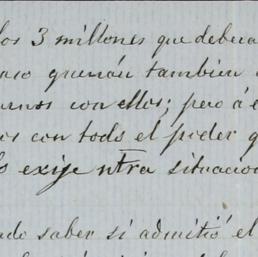 los 3 millones que debera
caso querrán tambien
arnos con ellos; pero á e
os con todo el poder q
lo exije ntra situacio
ado saber si admitió el